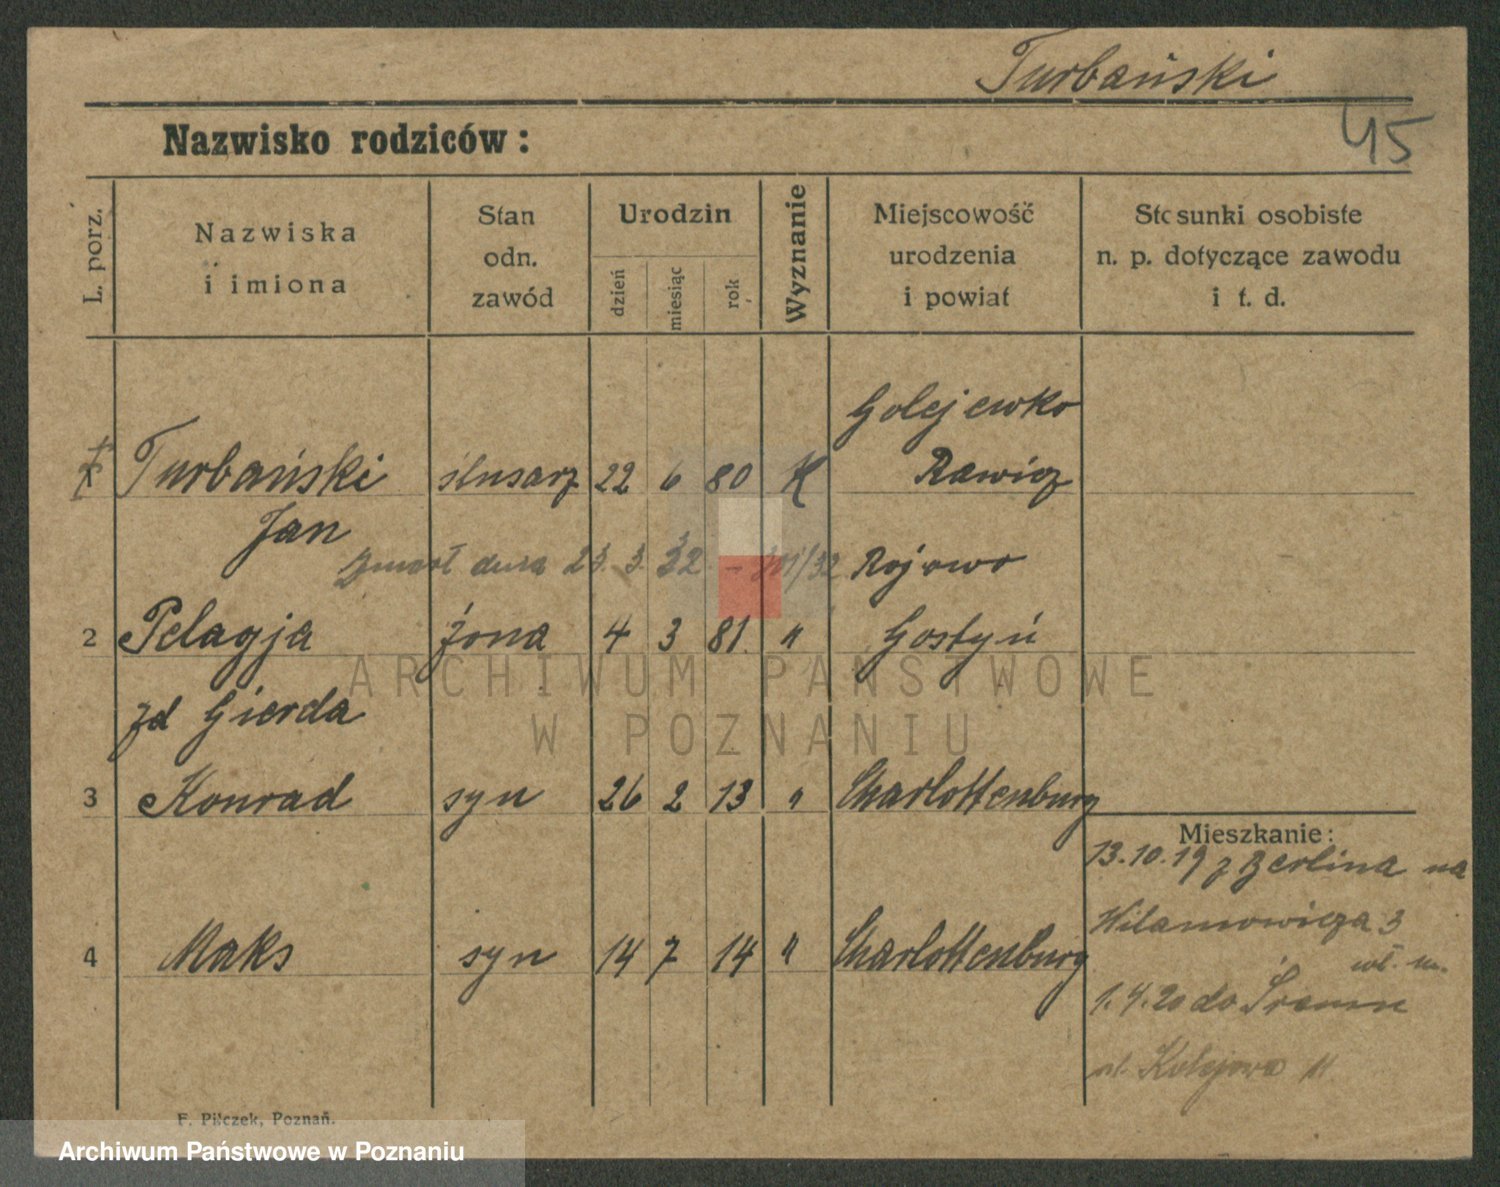 Turbański
45
Nazwisko rodziców:
L. porz.
Nazwiska
i imiona
Stan
odn.
zawód
Urodzin
dzień
miesiąc
rok
Wyznanie
Miejscowość
urodzenia
i powiat
Stosunki osobiste
n. p. dotyczące zawodu
i t. d.
Golejewko
1 Turbański ślusarz 22 6 80 K Rawicz
Jan
Zmarł dnia 23. 3. 32 Rojewo
2 Pelagja żona 4 3 81. " Gostyń
zd Gierda
3 Konrad syn 26 2 13 " Charlottenburg
Mieszkanie:
13.10.19 z Berlina na
Wilamowicza 3
4 Maks syn 14 7 14 " Charlottenburg
1.4.20 do Śremu
ul. Kolejowa 11
F. Pilczek, Poznań.
ARCHIWUM PAŃSTWOWE
W POZNANIU
Archiwum Państwowe w Poznaniu